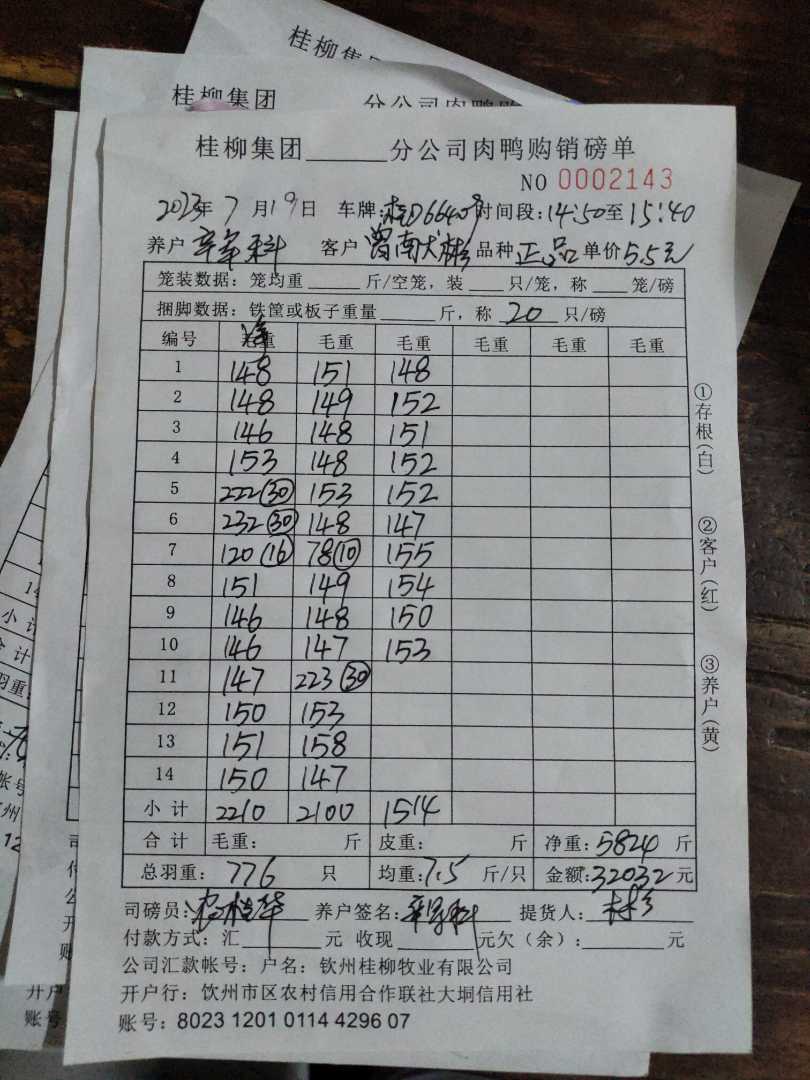 桂柳集
桂柳集团 分公司肉鸭购
桂柳集团______分公司肉鸭购销磅单
NO 0002143
2023年7月19日 车牌:桂D66408 时间段:14:50至15:40
养户 客户 品种 正品 单价 5.5元
笼装数据: 笼均重______斤/空笼, 装____只/笼, 称____笼/磅
捆脚数据: 铁筐或板子重量______斤, 称 20 只/磅
编号 净重 毛重 毛重 毛重 毛重 毛重
1 148 151 148
2 148 149 152
3 146 148 151
4 153 148 152
5 222(30) 153 152
6 232(30) 148 147
7 120(16) 78(10) 155
8 151 149 154
9 146 148 150
10 146 147 153
11 147 223(30)
12 150 153
13 151 158
14 150 147
小计 2210 2100 1514
合计 毛重: 斤 皮重: 斤 净重: 5824 斤
总羽重: 776 只 均重: 7.5 斤/只 金额: 32032 元
司磅员: 养户签名: 提货人:
付款方式: 汇______元 收现______元欠(余):______元
公司汇款帐号: 户名: 钦州桂柳牧业有限公司
开户行: 钦州市区农村信用合作联社大垌信用社
账号: 8023 1201 0114 4296 07
①存根(白)
②客户(红)
③养户(黄)